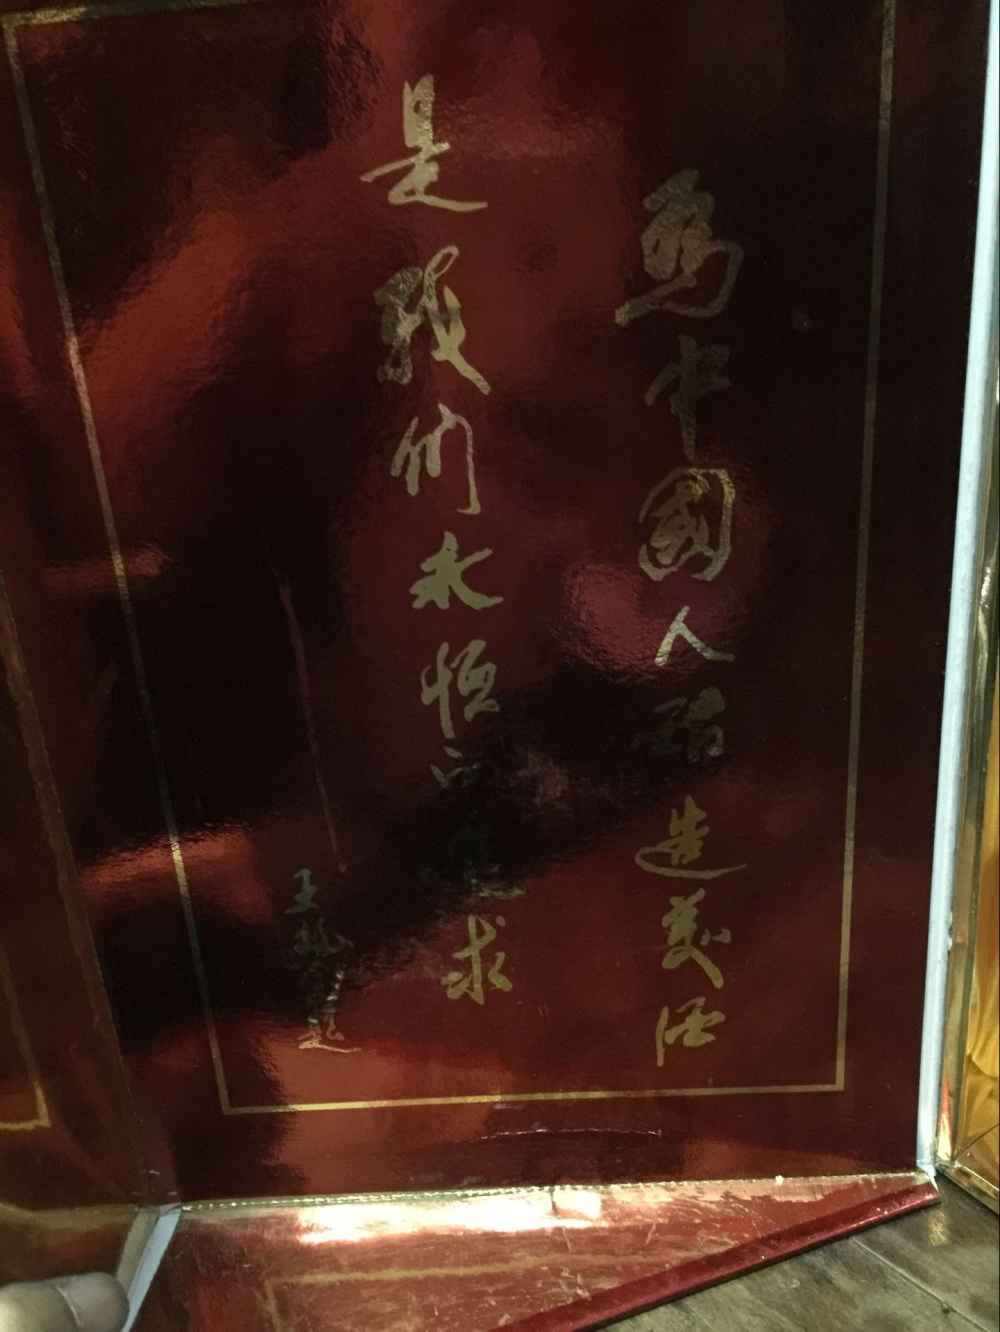 為中國人酿造美酒
是我们永恒的追求
王題